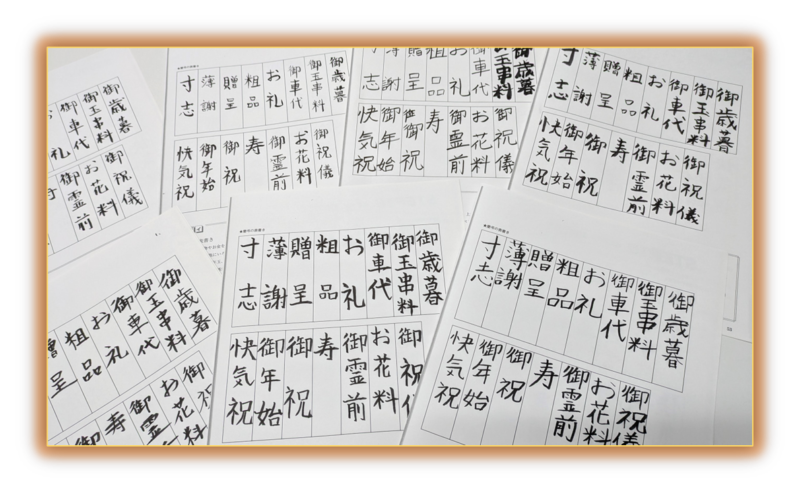 御歳暮
御玉串料
御車代
礼
御祝儀
お花料
御霊前
御歳暮
御玉串料
御車代
お礼
粗品
贈呈
薄謝
寸志
御祝儀
お花料
御霊前
寿
御祝
御年始
快気祝
歳暮
玉串料
御車代
お礼
粗品
贈呈
謝
志
御祝儀
お花料
御霊前
寿
御祝
御年始
快気祝
御歳暮
御玉串料
御車代
お礼
粗品
贈呈
薄謝
寸志
御祝儀
お花料
御霊前
寿
御祝
御年始
快気祝
御歳暮
御玉串料
御車代
お礼
粗品
贈呈
御祝
お花料
御霊
寿
御
御歳暮
御玉串料
御車代
お礼
粗品
贈呈
薄謝
寸志
御祝
お花料
御霊前
寿
御祝
御年始
快気祝
御歳暮
御玉串料
御車代
お礼
粗品
贈呈
薄謝
寸志
御祝儀
お花料
御霊前
寿
御祝
御年始
快気祝